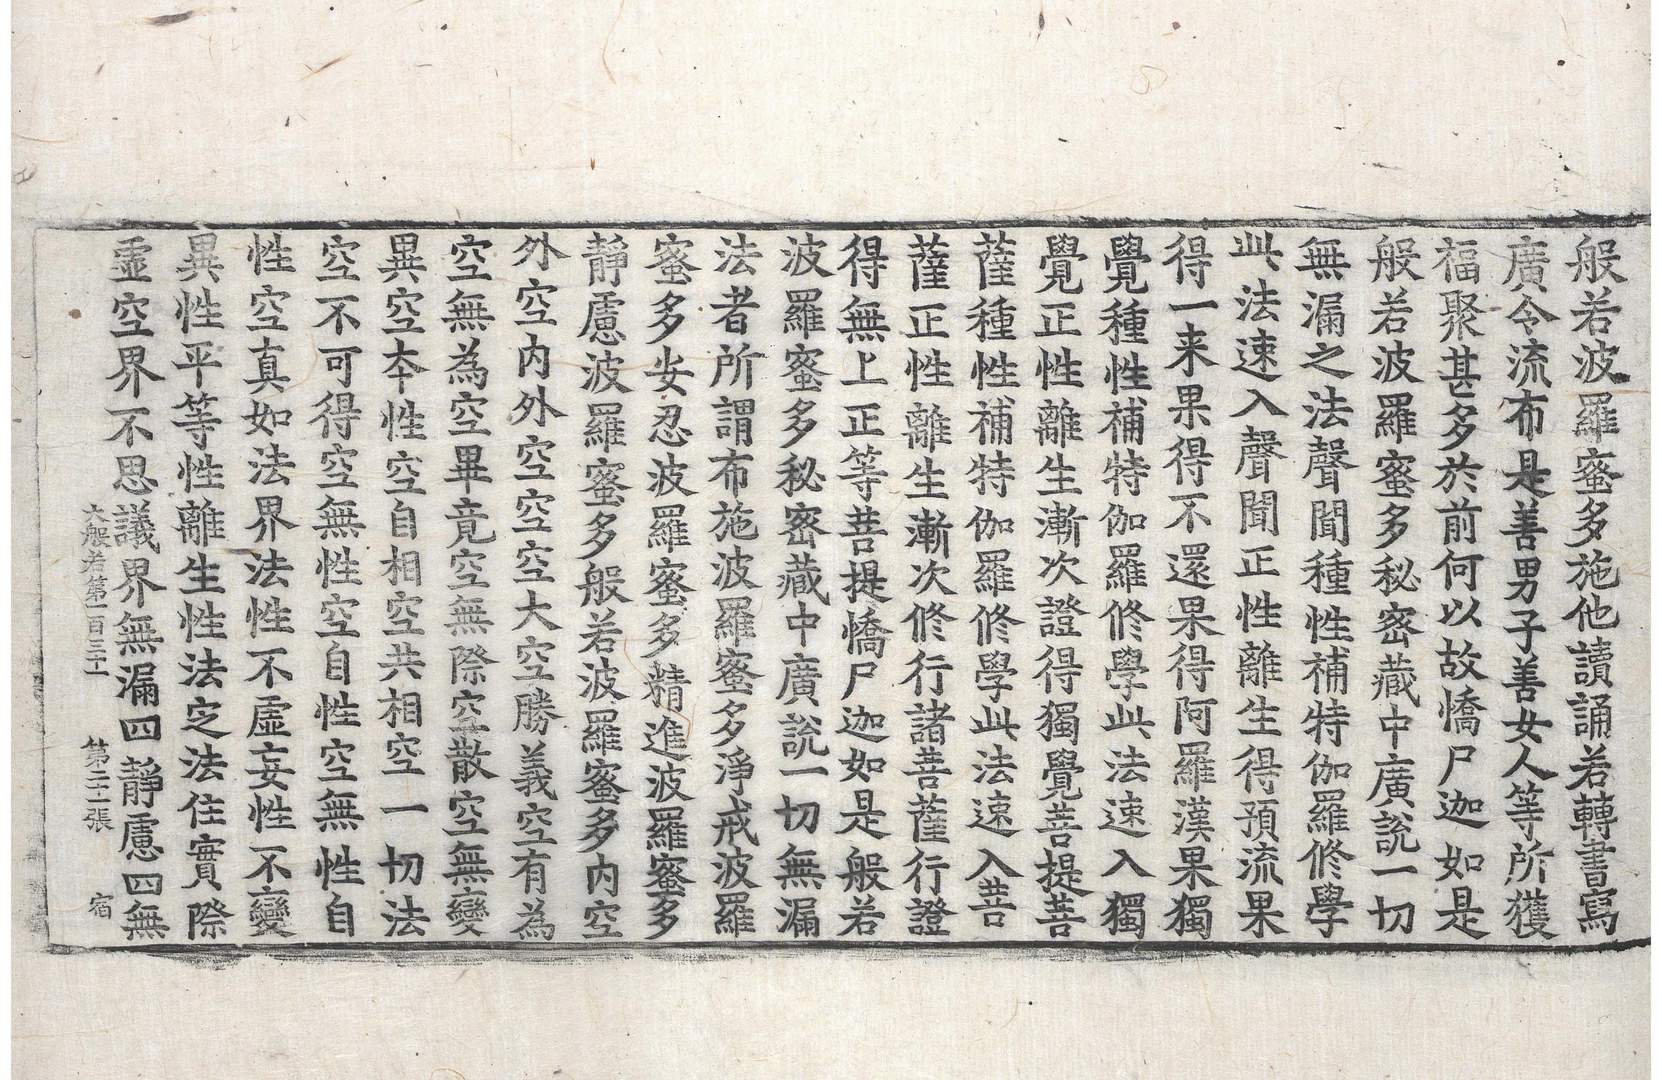 般若波羅蜜多施他讀誦若轉書寫
廣令流布是善男子善女人等所獲
福聚甚多於前何以故憍尸迦如是
般若波羅蜜多秘密藏中廣說一切
無漏之法聲聞種性補特伽羅修學
此法速入聲聞正性離生得預流果
得一来果得不還果得阿羅漢果獨
覺種性補特伽羅修學此法速入獨
覺正性離生漸次證得獨覺菩提菩
薩種性補特伽羅修學此法速入菩
薩正性離生漸次修行諸菩薩行證
得無上正等菩提憍尸迦如是般若
波羅蜜多秘密藏中廣說一切無漏
法者所謂布施波羅蜜多淨戒波羅
蜜多安忍波羅蜜多精進波羅蜜多
靜慮波羅蜜多般若波羅蜜多內空
外空內外空空空大空勝義空有為
空無為空畢竟空無際空散空無變
異空本性空自相空共相空一切法
空不可得空無性空自性空無性自
性空真如法界法性不虛妄性不變
異性平等性離生性法定法住實際
虛空界不思議界無漏四靜慮四無
大般若第一百三十一 第二十二張 宿